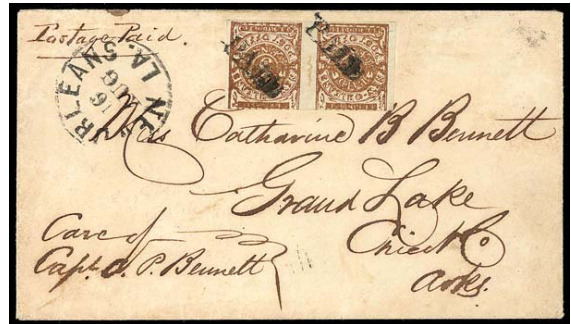 Postage Paid.
PAID PAID
N. ORLEANS. LA.
16
AUG
Mrs Catharine B Bennett
Grand Lake
Chicot Co
Arks.
Care of
Capt. P. Bennett